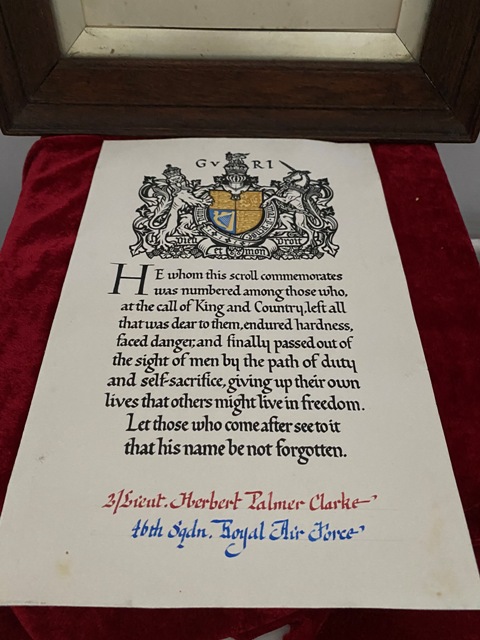 GVRI
Dieu et mon Droit
HE whom this scroll commemorates
was numbered among those who,
at the call of King and Country, left all
that was dear to them, endured hardness,
faced danger, and finally passed out of
the sight of men by the path of duty
and self-sacrifice, giving up their own
lives that others might live in freedom.
Let those who come after see to it
that his name be not forgotten.
2/Lieut. Herbert Palmer Clarke
46th Sqdn. Royal Air Force